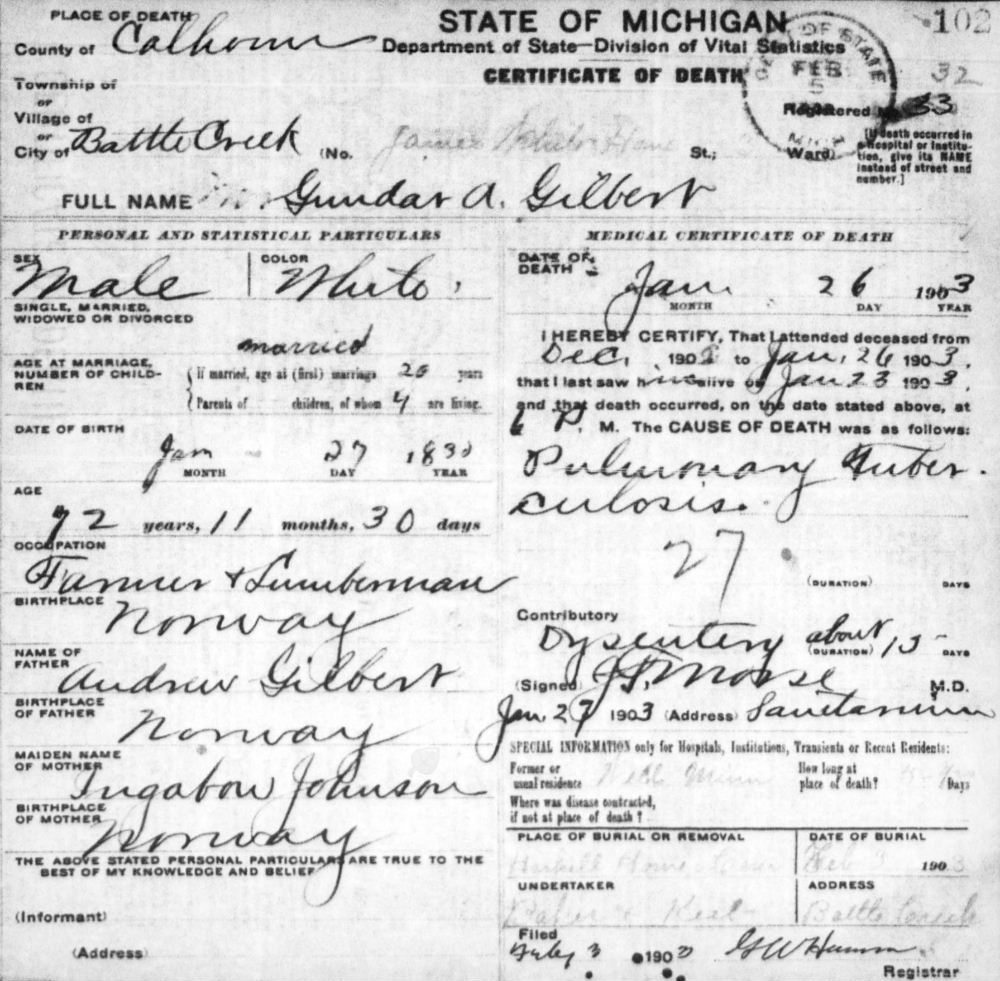 102
PLACE OF DEATH
STATE OF MICHIGAN
County of Calhoun
Department of State—Division of Vital Statistics
CERTIFICATE OF DEATH
DEPT OF STATE FEB 5 MICH
32
Township of
or
Village of
or
Registered No. 33
City of Battle Creek (No. James White Home St.; Ward)
[If death occurred in a Hospital or Institution, give its NAME instead of street and number.]
FULL NAME Gundar A. Gilbert
PERSONAL AND STATISTICAL PARTICULARS
SEX Male
COLOR White
SINGLE, MARRIED, WIDOWED OR DIVORCED
married
AGE AT MARRIAGE, NUMBER OF CHILDREN
If married, age at (first) marriage 20 years
Parents of children, of whom 4 are living.
DATE OF BIRTH
Jan 27 1830
MONTH DAY YEAR
AGE
72 years, 11 months, 30 days
OCCUPATION
Farmer & Lumberman
BIRTHPLACE
Norway
NAME OF FATHER
Andrew Gilbert
BIRTHPLACE OF FATHER
Norway
MAIDEN NAME OF MOTHER
Ingabow Johnson
BIRTHPLACE OF MOTHER
Norway
THE ABOVE STATED PERSONAL PARTICULARS ARE TRUE TO THE
BEST OF MY KNOWLEDGE AND BELIEF
(Informant)
(Address)
MEDICAL CERTIFICATE OF DEATH
DATE OF DEATH
Jan. 26 1903
MONTH DAY YEAR
I HEREBY CERTIFY, That I attended deceased from
Dec, 1902 to Jan, 26 1903,
that I last saw him alive on Jan 23 1903,
and that death occurred, on the date stated above, at
6 P. M. The CAUSE OF DEATH was as follows:
Pulmonary Tuber-
culosis.
27
(DURATION) DAYS
Contributory
Dysentery about 15 DAYS
(DURATION)
(Signed) Morse M.D.
Jan. 27 1903 (Address) Sanitarium
SPECIAL INFORMATION only for Hospitals, Institutions, Transients or Recent Residents:
Former or usual residence Minn
How long at place of death? Days
Where was disease contracted,
if not at place of death?
PLACE OF BURIAL OR REMOVAL
Haskell Home Cem
DATE OF BURIAL
Feb 1903
UNDERTAKER
ADDRESS
Battle Creek
Filed
Feby 3 1903
Registrar